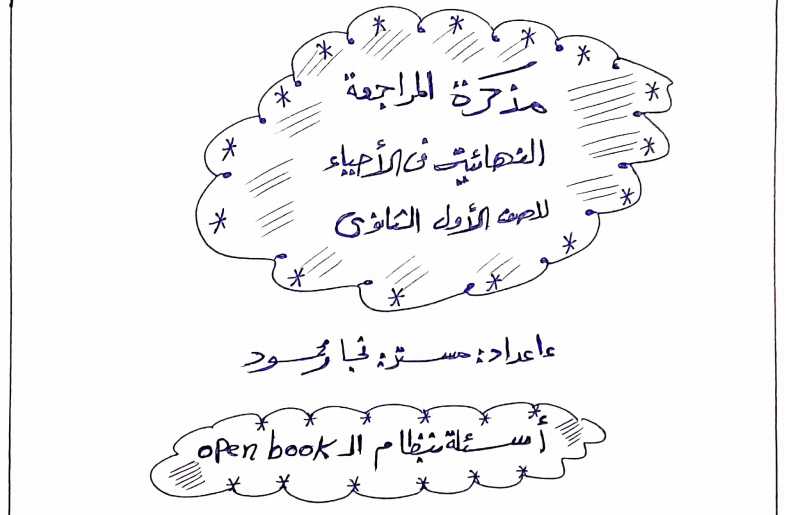 مذكرة المراجعة
النهائية في الأحياء
للصف الأول الثانوى
إعداد: مستر:
أسئلة بنظام الـ open book